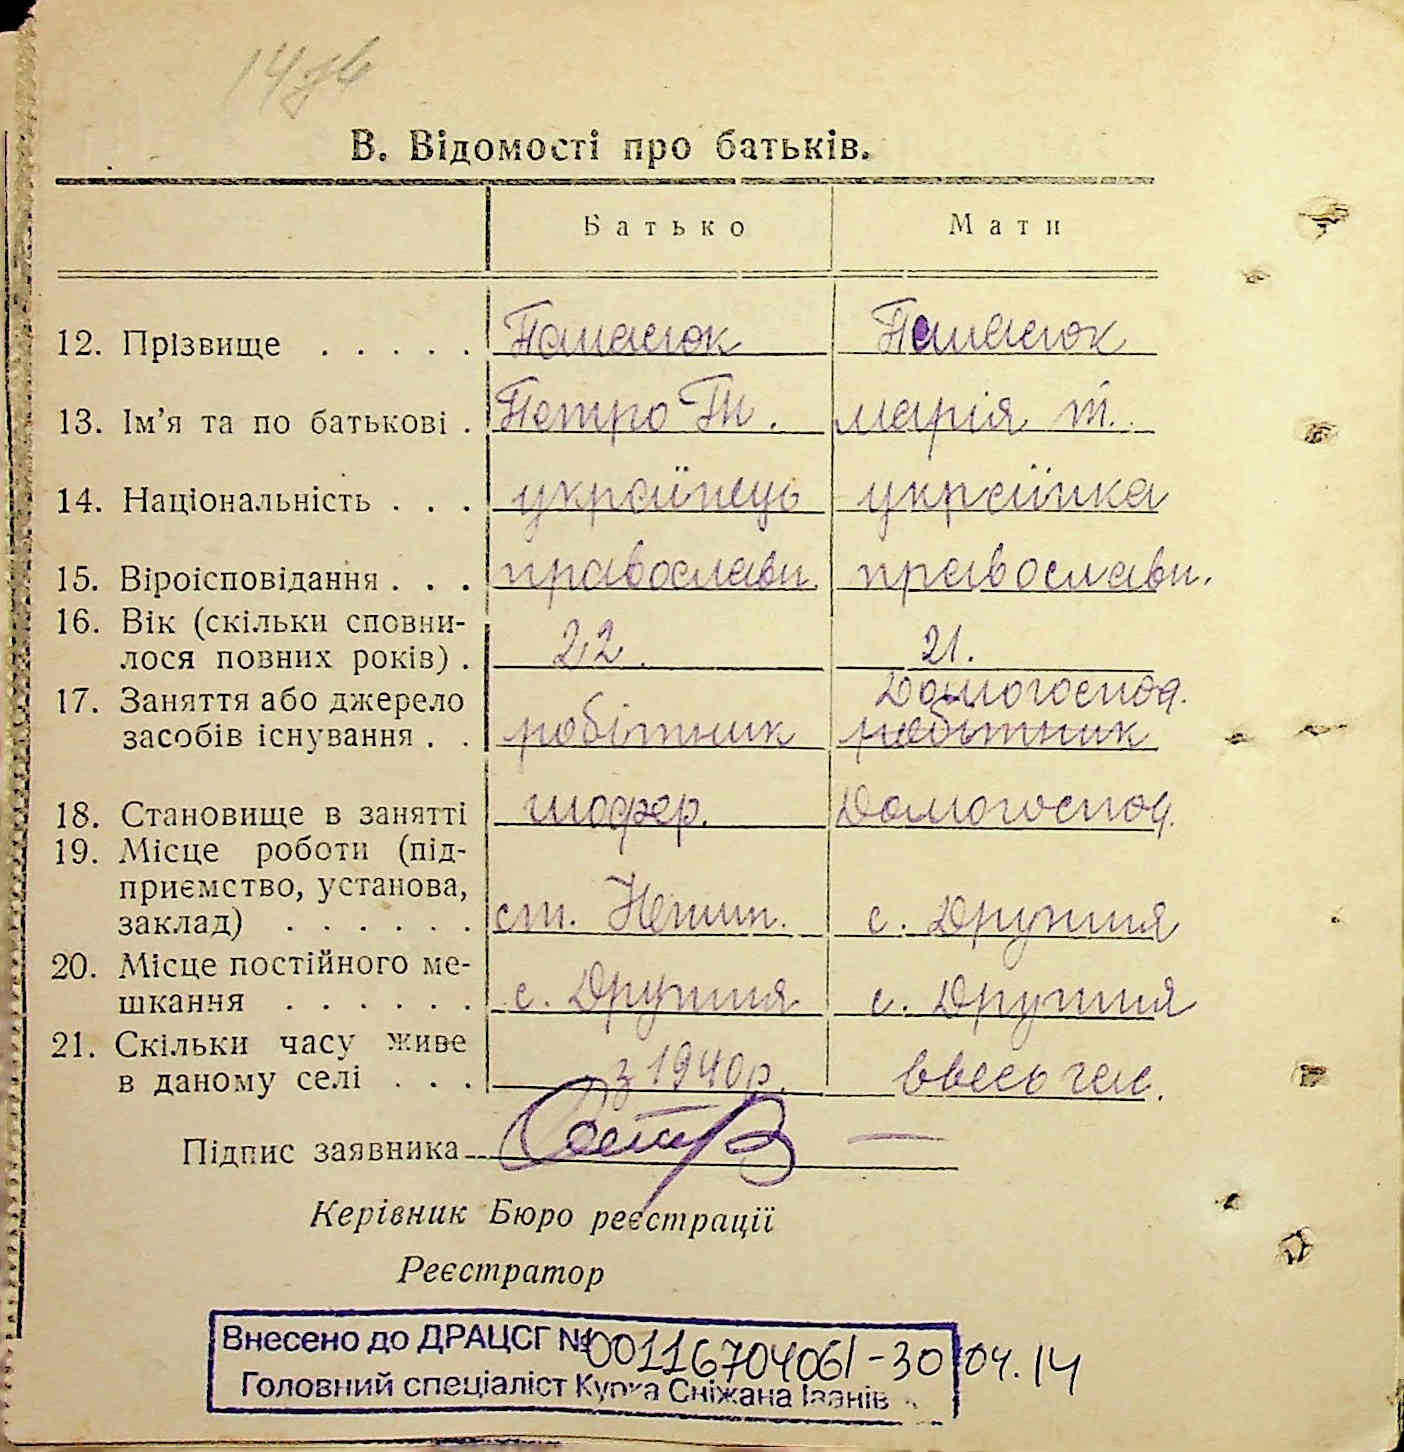 В. Відомості про батьків.
Батько Мати
12. Прізвище . . . . . Панасюк Панасюк
13. Ім'я та по батькові . Петро Марія
14. Національність . . . українець українка
15. Віроісповідання . . . православн. православн.
16. Вік (скільки сповни-
лося повних років) . 22. 21.
17. Заняття або джерело Домогоспод.
засобів існування . . робітник робітник
18. Становище в занятті шофер. Домогоспод.
19. Місце роботи (під-
приємство, установа,
заклад) . . . . . . ст. с.
20. Місце постійного ме-
шкання . . . . . . с. с.
21. Скільки часу живе
в даному селі . . . з 1940р. ввесь час.
Підпис заявника
Керівник Бюро реєстрації
Реєстратор
Внесено до ДРАЦСГ № 00116704061-30.04.14
Головний спеціаліст Курка Сніжана Іванів